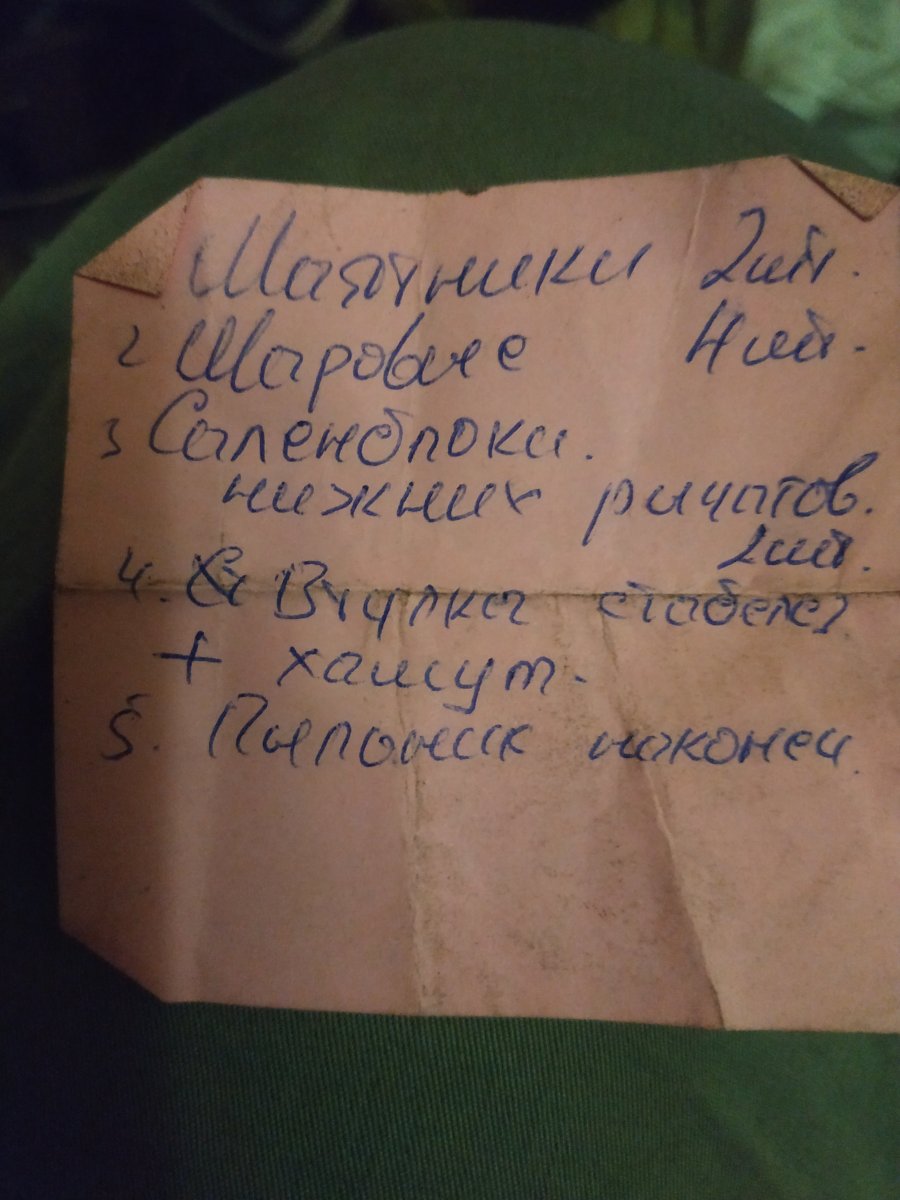 Маятники 2шт.
2 Шаровые 4шт.
3 Саленблоки.
нижних рычагов.
2шт.
4. Втулка стабелез
+ хамут.
5. Пыльник наконеч.